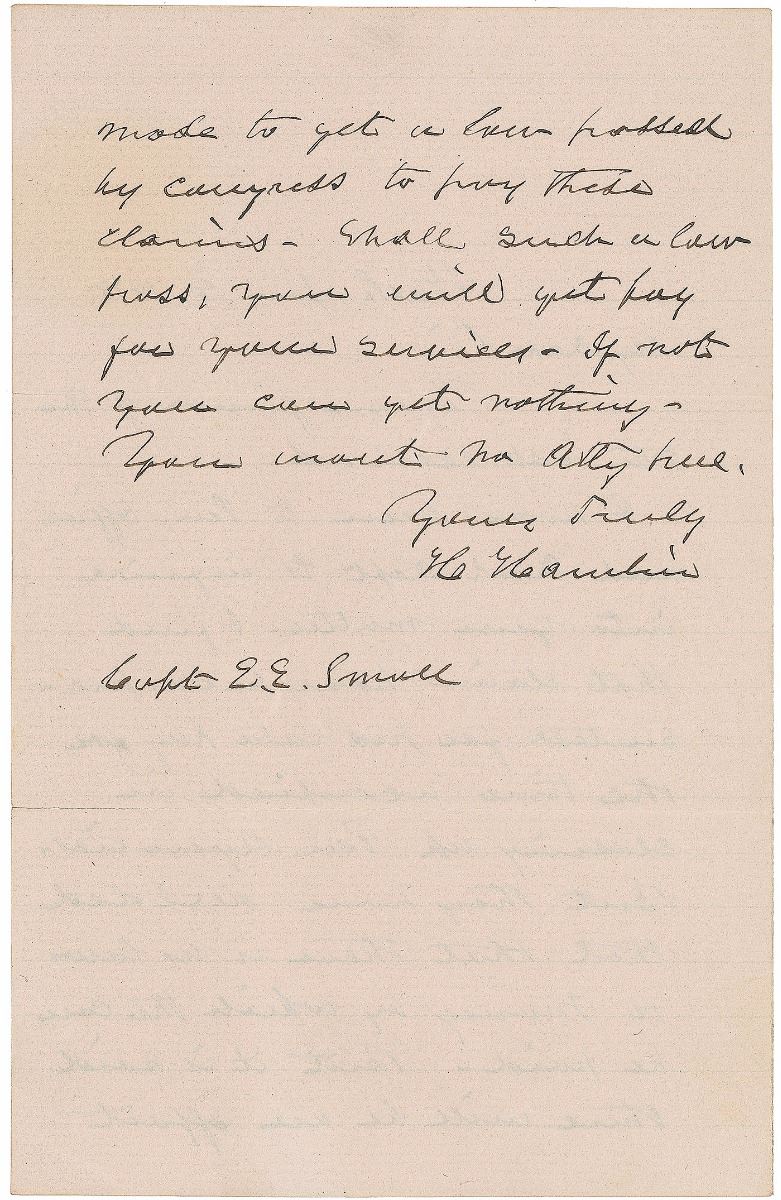 made to get a law passed
by congress to pay these
claims - Shall such a law
pass, you will get pay
for your services - If not
you can get nothing -
You want no Atty here.
Yours Truly
H Hamlin
Capt E. E. Small